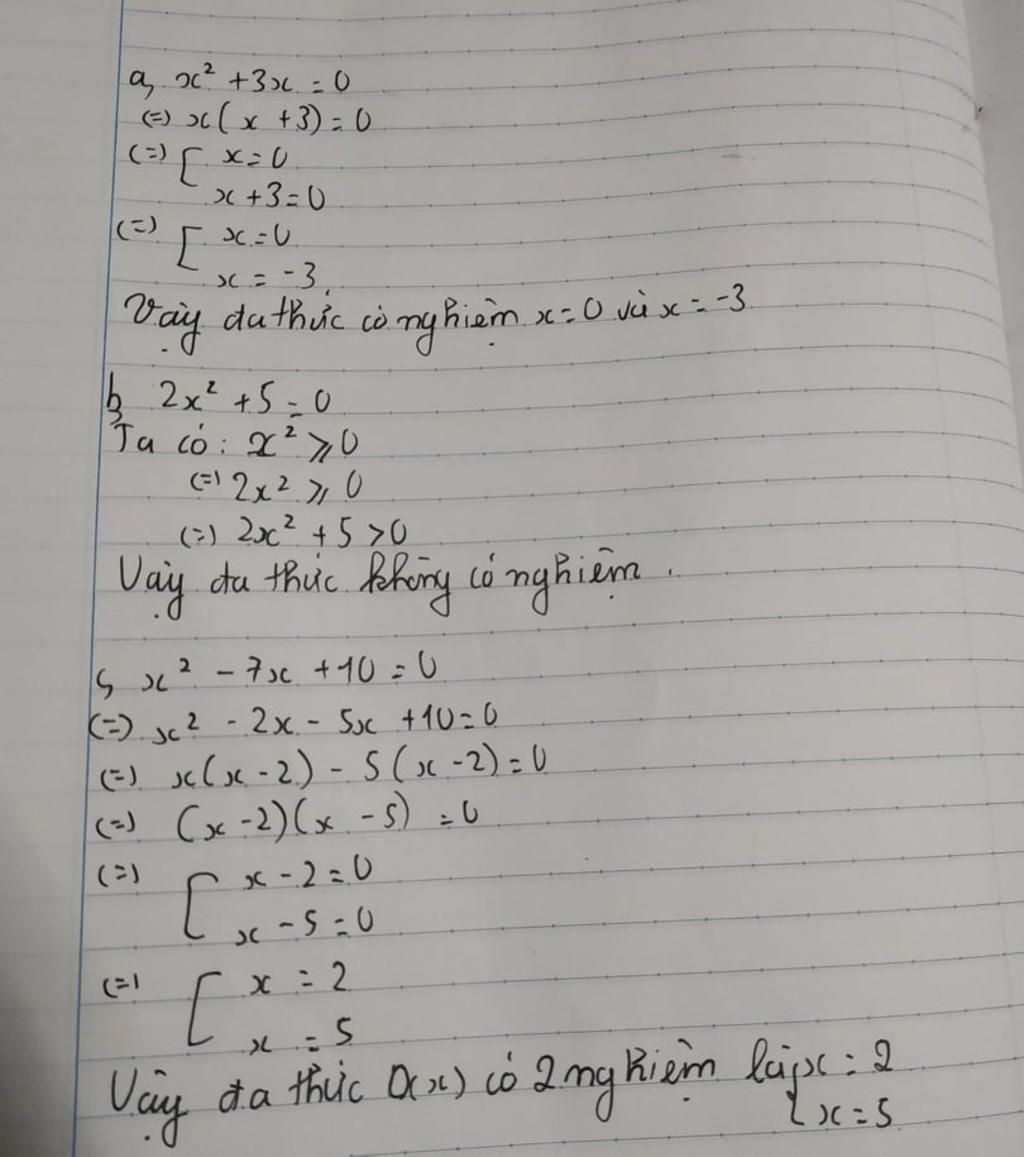 a, x² + 3x = 0
(=) x(x + 3) = 0
(=) [ x = 0
x + 3 = 0
(=) [ x = 0
x = -3.
Vậy đa thức có nghiệm x = 0 và x = -3
b, 2x² + 5 = 0
Ta có: x² ⩾ 0
(=) 2x² ⩾ 0
(=) 2x² + 5 > 0
Vậy đa thức không có nghiệm.
c, x² - 7x + 10 = 0
(=) x² - 2x - 5x + 10 = 0
(=) x(x - 2) - 5(x - 2) = 0
(=) (x - 2)(x - 5) = 0
(=) [ x - 2 = 0
x - 5 = 0
(=) [ x = 2
x = 5
Vậy đa thức Q(x) có 2 nghiệm là { x = 2
x = 5